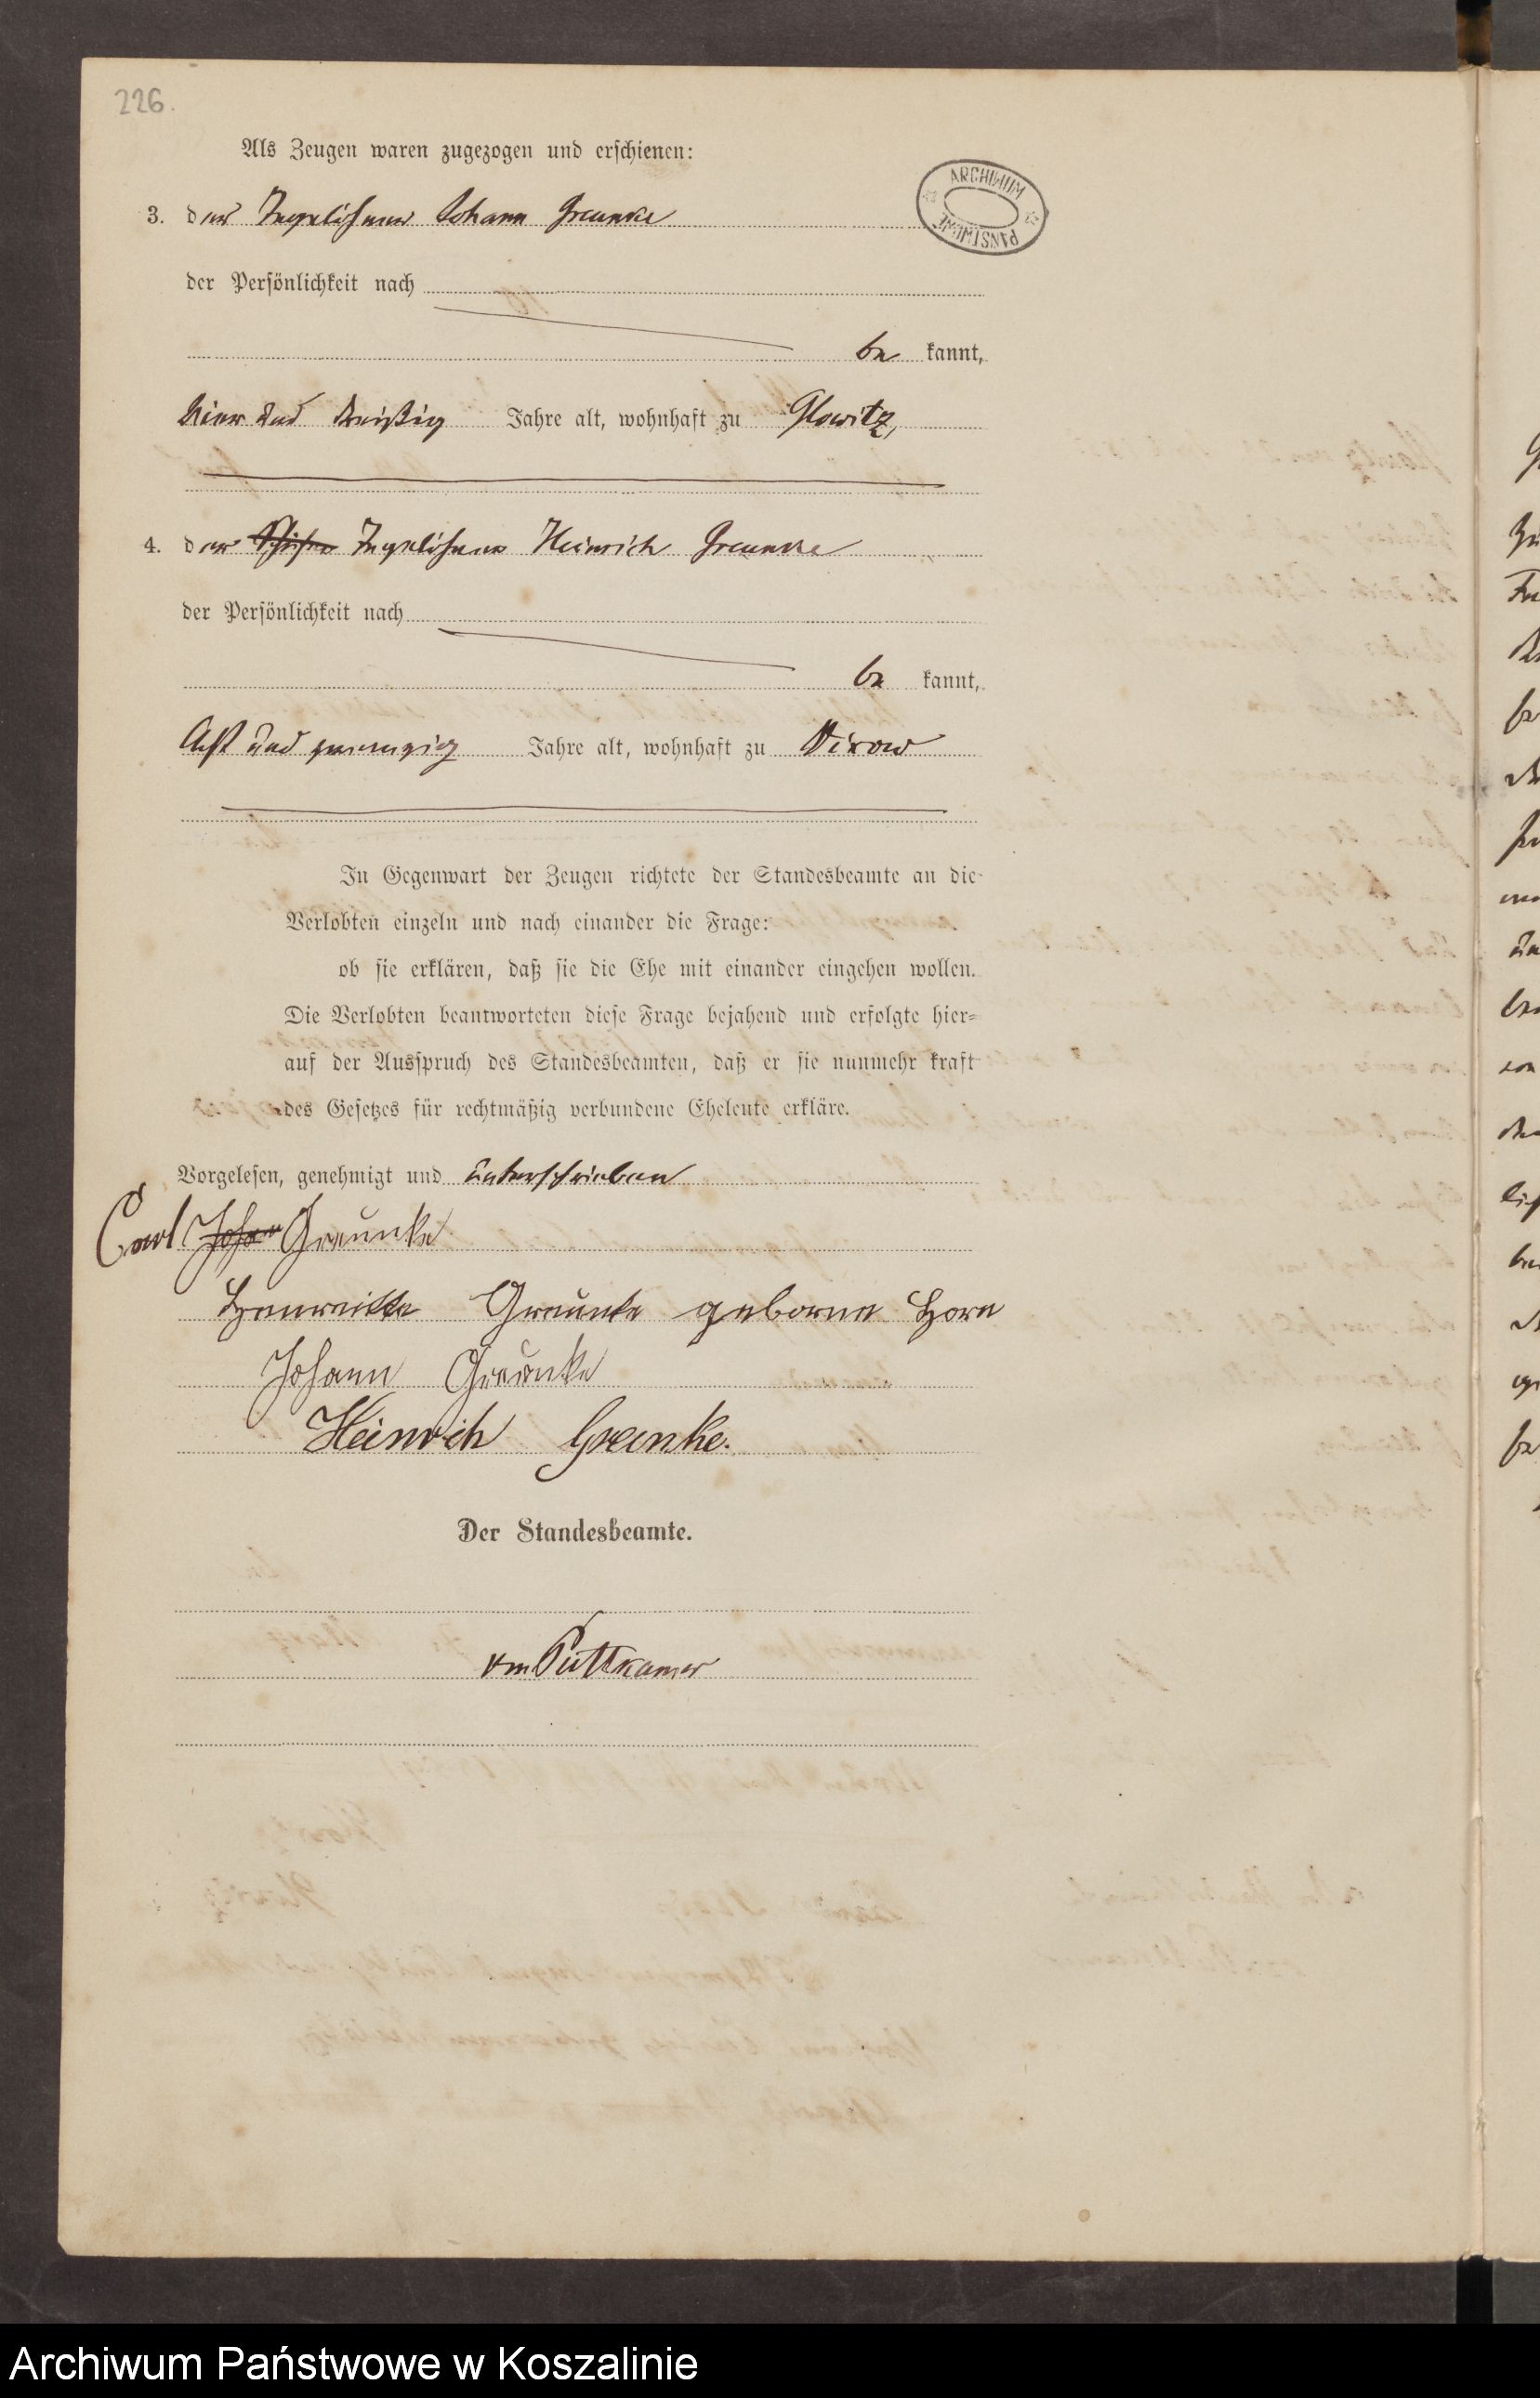 226.
Als Zeugen waren zugezogen und erschienen:
ARCHIWUM
PAŃSTWOWE
3. der Tagelöhner Johann Greunke
der Persönlichkeit nach
be kannt,
vier und dreißig Jahre alt, wohnhaft zu Glowitz,
4. der Tagelöhner Heinrich Greunke
der Persönlichkeit nach
be kannt,
Acht und zwanzig Jahre alt, wohnhaft zu
In Gegenwart der Zeugen richtete der Standesbeamte an die
Verlobten einzeln und nach einander die Frage:
ob sie erklären, daß sie die Ehe mit einander eingehen wollen.
Die Verlobten beantworteten diese Frage bejahend und erfolgte hier=
auf der Ausspruch des Standesbeamten, daß er sie nunmehr kraft
des Gesetzes für rechtmäßig verbundene Eheleute erkläre.
Vorgelesen, genehmigt und unterschrieben
Carl Johan Greunke
Henreitte Greunke geborne Horn
Johann Greunke
Heinrich Greunke.
Der Standesbeamte.
von Puttkamer
Archiwum Państwowe w Koszalinie